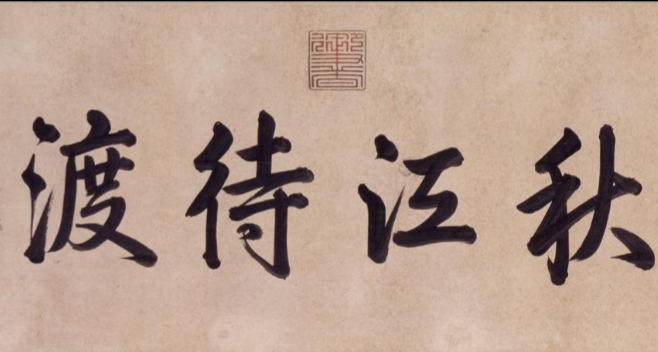 秋江待渡